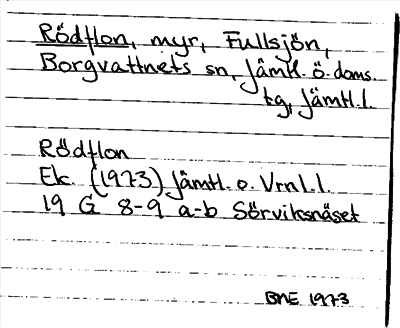 Rödflon, myr, Fullsjön,
Borgvattnets sn, Jämtl. ö. doms.
tg, Jämtl.l.
Rödflon
Ek. (1973) Jämtl. o. Vrnl.l.
19 G 8-9 a-b Sörviksnäset
BNE 1973